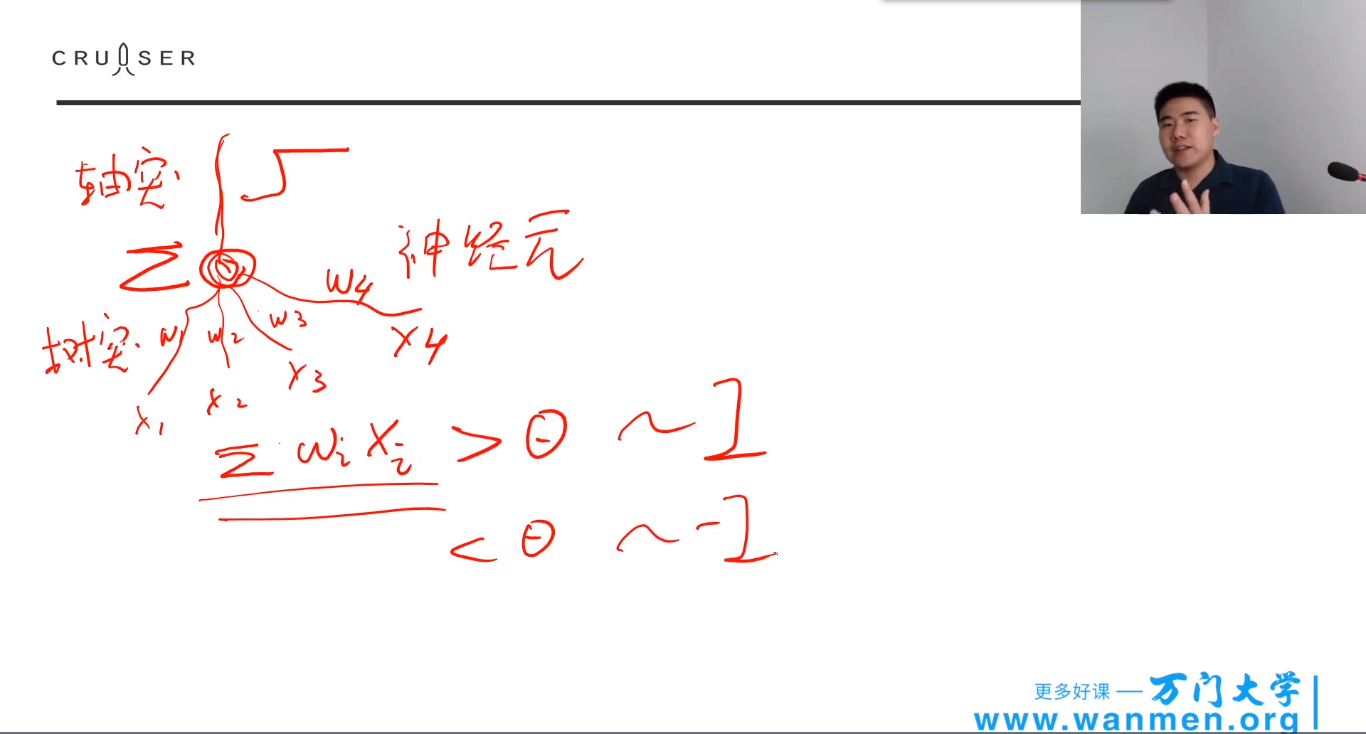 CRUISER
轴突
Σ
神经元
树突
w1 w2 w3 w4
x1 x2 x3 x4
Σ wi xi > θ ~ 1
< θ ~ -1
更多好课 — 万门大学
www.wanmen.org